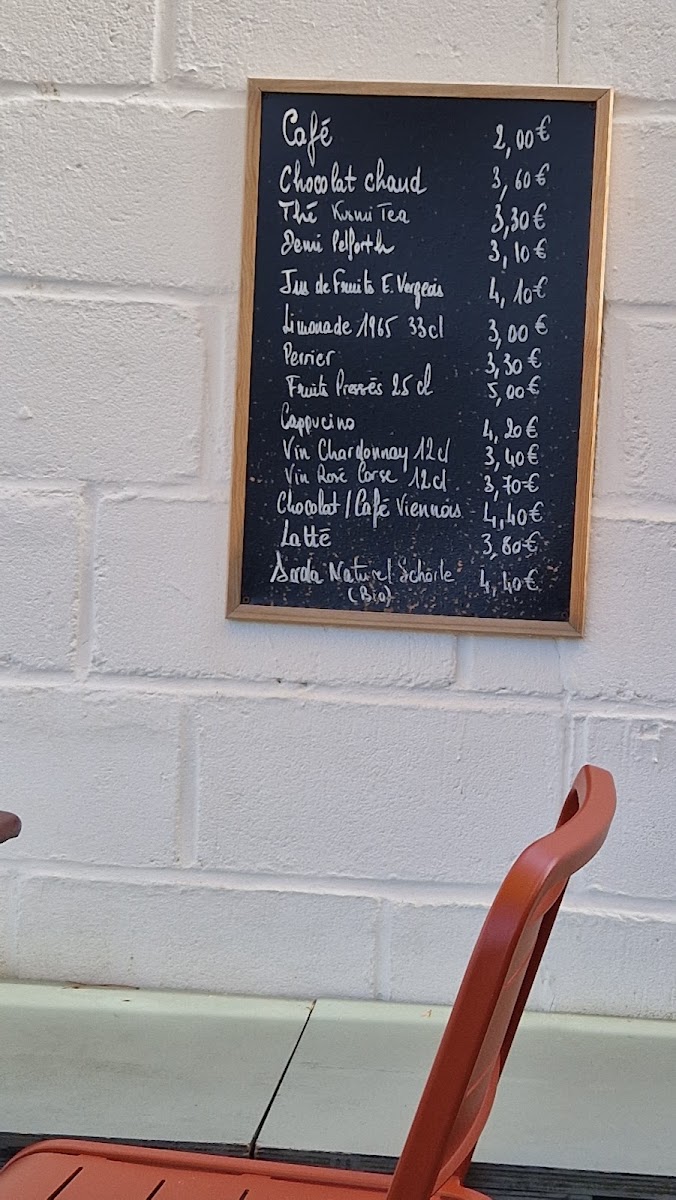 Café 2,00€
Chocolat chaud 3,60€
Thé Kusmi Tea 3,30€
Demi Pelforth 3,10€
Jus de Fruits E. Vergeois 4,10€
Limonade 1965 33cl 3,00€
Perrier 3,30€
Fruits Pressés 25 cl 5,00€
Cappucino 4,20€
Vin Chardonnay 12cl 3,40€
Vin Rosé Corse 12cl 3,70€
Chocolat/Café Viennois 4,40€
Latté 3,80€
Naturel Schorle 4,40€
(Bio)